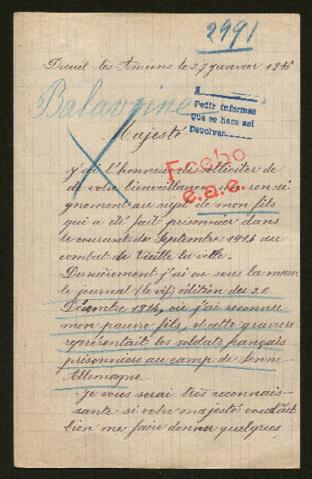 2991
Dreuil les Amiens le 27 Janvier 1915
Balavoine
Pedir informes
Que se hace así
Devolver
Majesté
Fecho
e.a.e.
J'ai l'honneur de solliciter de
de votre bienveillance un rensei
gnement au sujet de mon fils
qui a été fait prisonnier dans
le courant de Septembre 1914 au
combat de Vieille la ville.
Dernièrement j'ai eu sous la main
le journal (le vif) édition du 20
Décembre 1914, où j'ai reconnu
mon pauvre fils, et cette gravure
représentait les soldats français
prisonniers au camp de Senne
Allemagne
Je vous serai très reconnais-
sante si votre majesté voudrait
bien me faire donner quelques